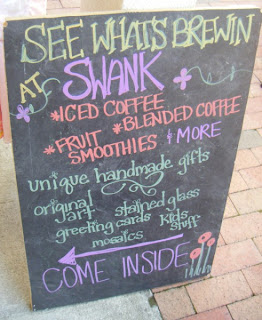 SEE WHATS BREWIN
AT SWANK
*ICED COFFEE
*BLENDED COFFEE
*FRUIT SMOOTHIES & MORE
unique handmade gifts
original art
stained glass
greeting cards
kids stuff
mosaics
COME INSIDE